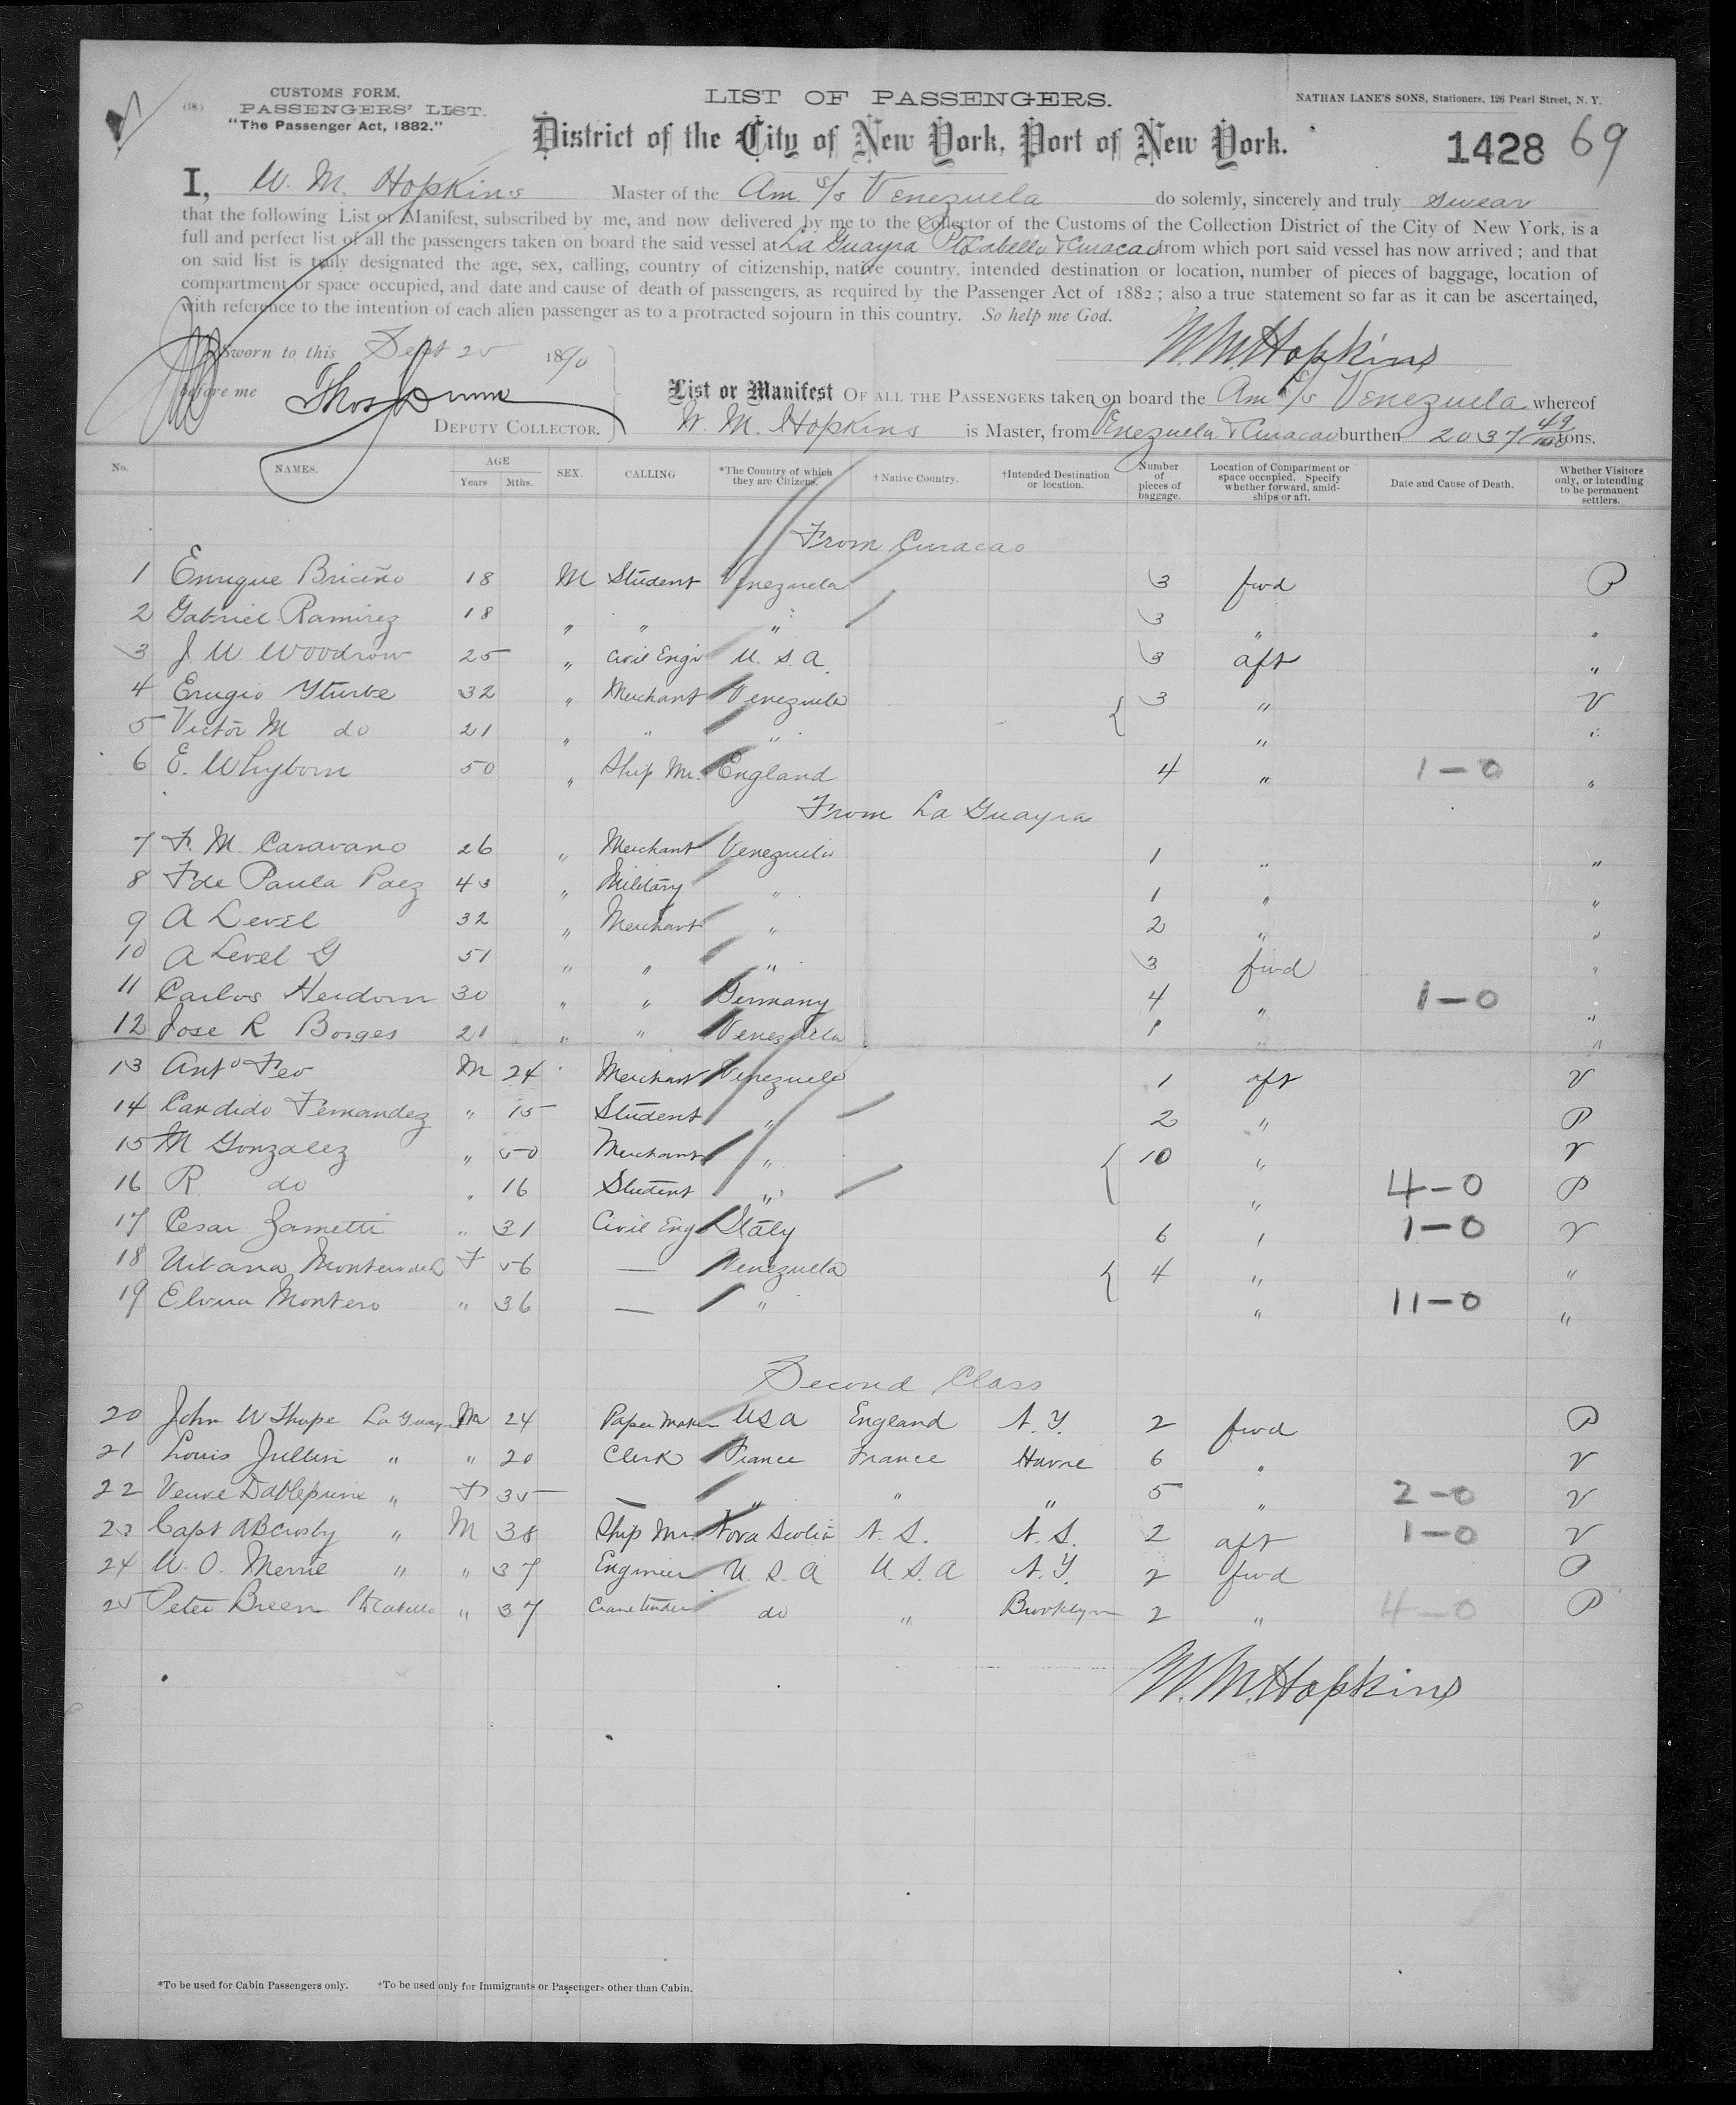 (18)
CUSTOMS FORM.
PASSENGERS' LIST.
"The Passenger Act, 1882."
LIST OF PASSENGERS.
NATHAN LANE'S SONS, Stationers, 126 Pearl Street, N. Y.
District of the City of New York, Port of New York.
1428 69
I, W. M. Hopkins Master of the Am. s/s Venezuela do solemly, sincerely and truly swear
that the following List or Manifest, subscribed by me, and now delivered by me to the Collector of the Customs of the Collection District of the City of New York, is a
full and perfect list of all the passengers taken on board the said vessel at La Guayra Pto Cabello & Curacao from which port said vessel has now arrived ; and that
on said list is truly designated the age, sex, calling, country of citizenship, native country, intended destination or location, number of pieces of baggage, location of
compartment or space occupied, and date and cause of death of passengers, as required by the Passenger Act of 1882 ; also a true statement so far as it can be ascertained,
with reference to the intention of each alien passenger as to a protracted sojourn in this country. So help me God.
Sworn to this Sept 25 1890
W. M. Hopkins
before me Thos Dunn
DEPUTY COLLECTOR.
List or Manifest OF ALL THE PASSENGERS taken on board the Am s/s Venezuela whereof
W. M. Hopkins is Master, from Venezuela & Curacao burthen 2037 49/100 tons.
No. NAMES. AGE Years Mths. SEX. CALLING *The Country of which they are Citizens. †Native Country. †Intended Destination or location. Number of pieces of baggage. Location of Compartment or space occupied. Specify whether forward, amidships or aft. Date and Cause of Death. Whether Visitors only, or intending to be permanent settlers.
From Curacao
1 Enrique Briceño 18 M Student Venezuela 3 fwd P
2 Gabriel Ramirez 18 " " " 3 " "
3 J. W. Woodrow 25 " Civil Engr U. S. A. 3 aft "
4 Erugio Yturbe 32 " Merchant Venezuela 3 " V
5 Victor M do 21 " " " " "
6 E. Whyborn 50 " Ship Mr. England 4 " 1-0 "
From La Guayra
7 F. M. Caravano 26 " Merchant Venezuela 1 " "
8 F de Paula Paez 43 " Military " 1 " "
9 A Level 32 " Merchant " 2 " "
10 A Level G 51 " " " 3 fwd "
11 Carlos Heidorn 30 " " Germany 4 " 1-0 "
12 Jose R Borges 21 " " Venezuela 1 " "
13 Anto Feo M 24 Merchant Venezuela 1 aft V
14 Candido Fernandez " 15 Student " 2 " P
15 M Gonzalez " 50 Merchant " 10 " V
16 R do " 16 Student " " 4-0 P
17 Cesar Zametti " 31 Civil Eng Italy 6 " 1-0 V
18 Urbana Montero de F 56 — Venezuela 4 " "
19 Elvira Montero " 36 — " " 11-0 "
Second Class
20 John W Thape La Guayra M 24 Paper Maker USA England N. Y. 2 fwd P
21 Louis Jullien " " 20 Clerk France France Havre 6 " V
22 Veuve " F 35 — " " " 5 " 2-0 V
23 Capt AB Crosby " M 38 Ship Mr. Nova Scotia N. S. N. S. 2 aft 1-0 V
24 W. O. Merrie " " 37 Engineer U. S. A U. S. A N. Y. 2 fwd P
25 Peter Breen Pto Cabello " 37 Crane tender do " Brooklyn 2 " 4-0 P
W. M. Hopkins
*To be used for Cabin Passengers only. †To be used only for Immigrants or Passengers other than Cabin.